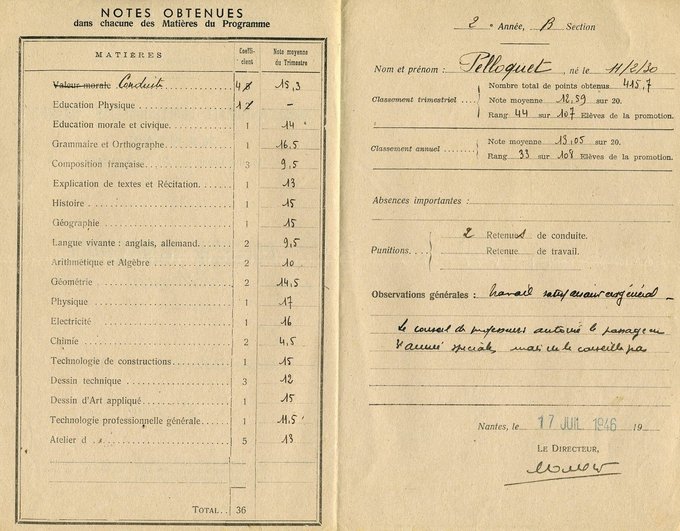 NOTES OBTENUES
dans chacune des Matières du Programme
MATIÈRES Coeffi-cient Note moyenne du Trimestre
Valeur morale Conduite 4 15,3
Education Physique 1 -
Education morale et civique 1 14
Grammaire et Orthographe 1 16,5
Composition française 3 9,5
Explication de textes et Récitation 1 13
Histoire 1 15
Géographie 1 15
Langue vivante : anglais, allemand 2 9,5
Arithmétique et Algèbre 2 10
Géométrie 2 14,5
Physique 1 17
Electricité 1 16
Chimie 2 4,5
Technologie de constructions 1 15
Dessin technique 3 12
Dessin d'Art appliqué 1 15
Technologie professionnelle générale 1 11,5
Atelier d 5 13
TOTAL 36
2e Année, B Section
Nom et prénom : Pelloquet, né le 11/2/30
Classement trimestriel
Nombre total de points obtenus 415,7
Note moyenne 12,59 sur 20.
Rang 44 sur 107 Elèves de la promotion.
Classement annuel
Note moyenne 13,05 sur 20.
Rang 33 sur 108 Elèves de la promotion.
Absences importantes :
Punitions.
2 Retenues de conduite.
Retenue de travail.
Observations générales : travail satisfaisant en général
Le conseil des professeurs autorise le passage en
année spéciale, mais ne le conseille pas
Nantes, le 17 JUIL 1946 19
LE DIRECTEUR,